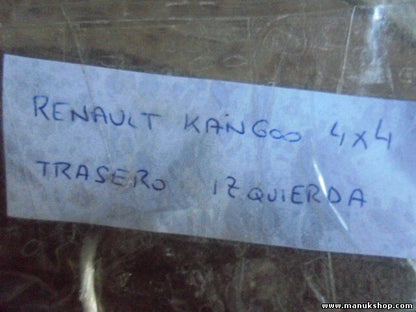 RENAULT KANGOO 4X4
TRASERO IZQUIERDA
www.manukshop.com